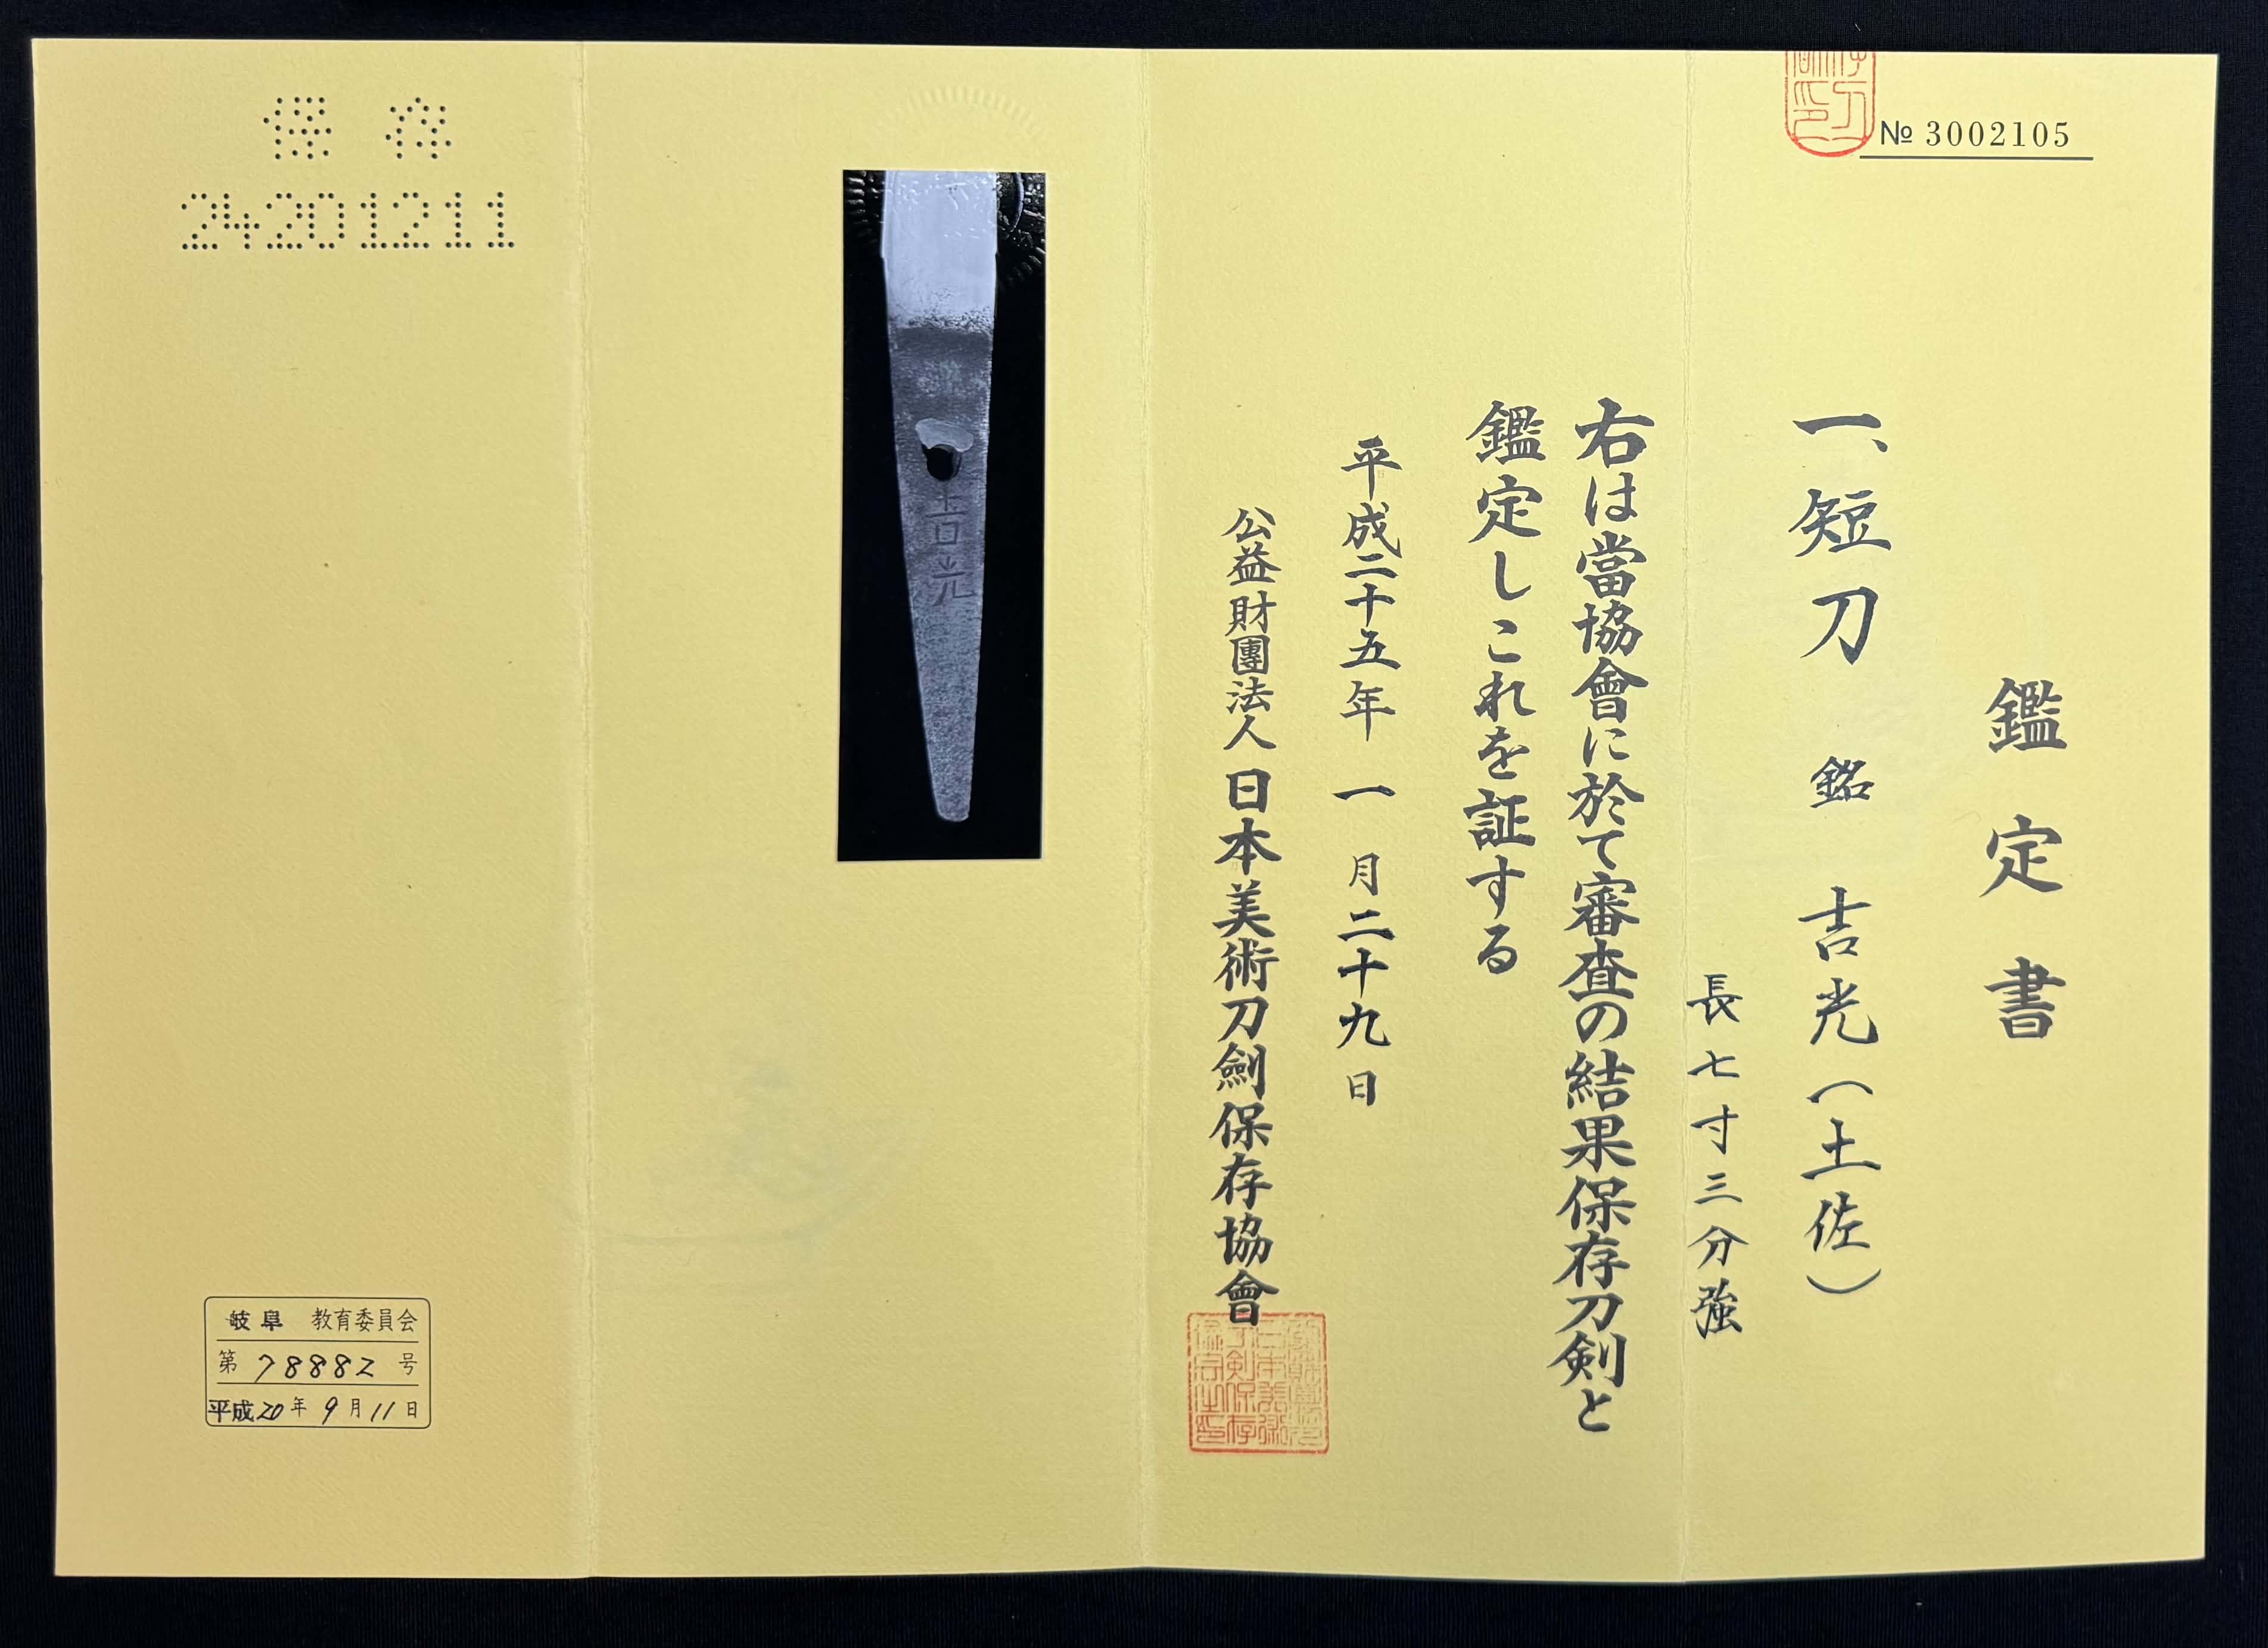 № 3002105
鑑定書
一、短刀 銘 吉光(土佐)
長七寸三分強
右は當協會に於て審査の結果保存刀剣と
鑑定しこれを証する
平成二十五年一月二十九日
公益財團法人日本美術刀劍保存協會
吉光
保存
24201211
岐阜 教育委員会
第 78882 号
平成20年9月11日